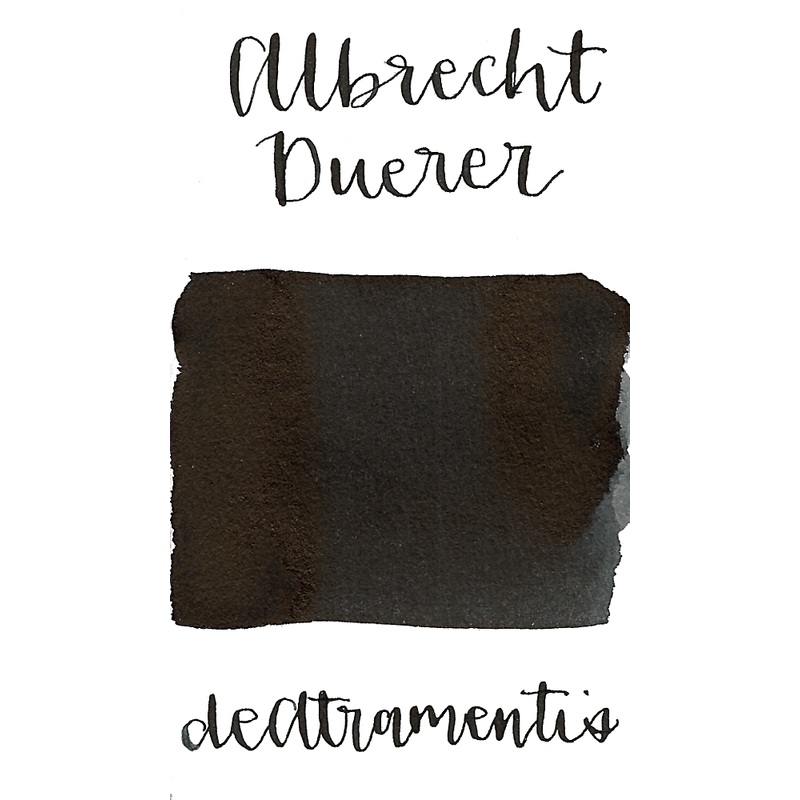 Albrecht
Duerer
deAtramentis